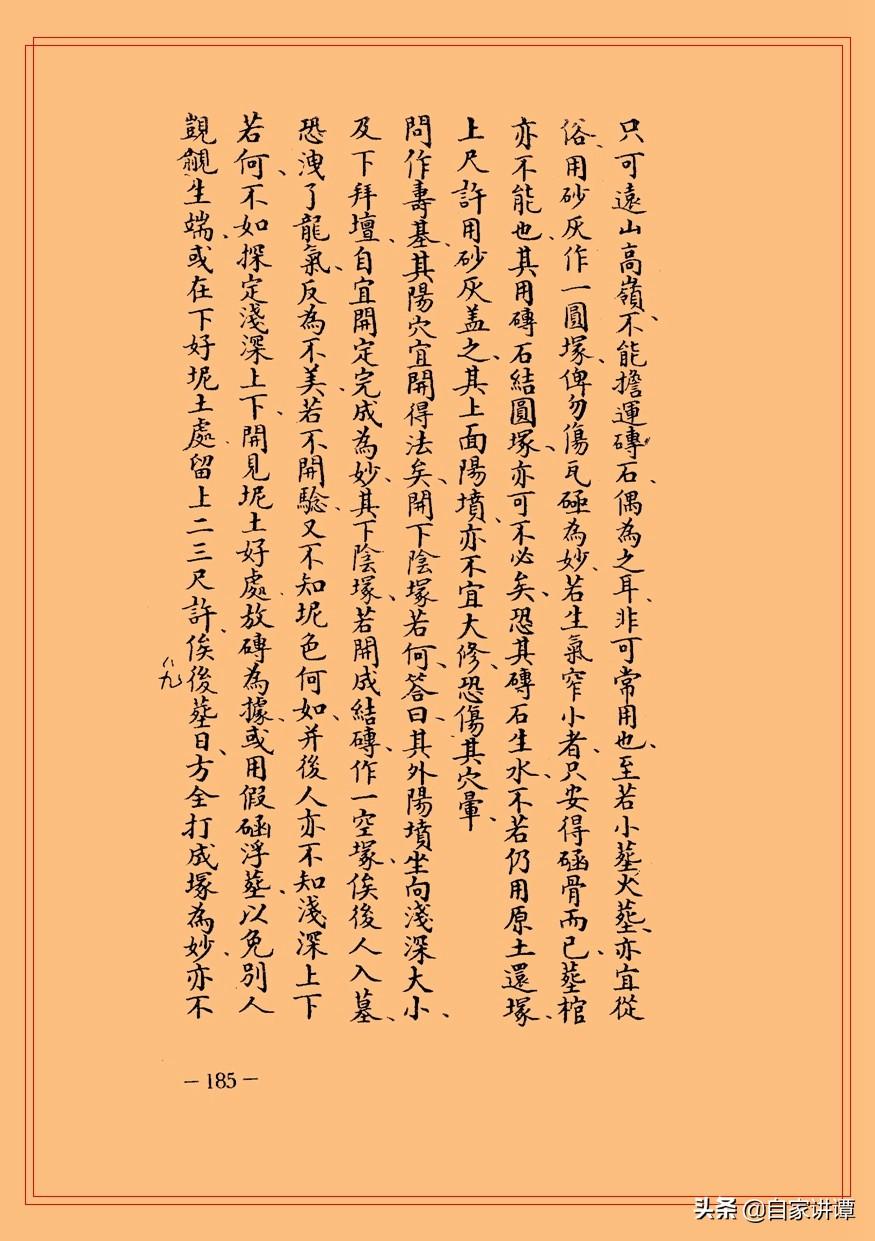 只可遠山高嶺、不能擔運磚石、偶為之耳、非可常用也、至若小塟火塟、亦宜從
俗、用砂灰作一圓塚、俾勿傷瓦𥐻為妙、若生氣窄小者、只安得𥐻骨而已、塟棺
亦不能也、其用磚石結圓塚、亦可不必矣、恐其磚石生水、不若仍用原土還塚、
上尺許用砂灰盖之、其上面陽墳、亦不宜大修、恐傷其穴暈、
問作壽基、其陽穴宜開得法矣、開下陰塚若何、答曰、其外陽墳坐向淺深大小、
及下拜壇、自宜開定完成為妙、其下陰塚、若開成結磚、作一空塚、俟後人入墓、
恐洩了龍氣、反為不美、若不開騐、又不知坭色何如、并後人亦不知淺深上下
若何、不如探定淺深上下、開見坭土好處、放磚為據、或用假𥐻浮塟、以免別人
覬覦生端、或在下好坭土處、留上二三尺許、俟後塟日、方全打成塚為妙、亦不
八九
－185－
头条 @自家讲谭